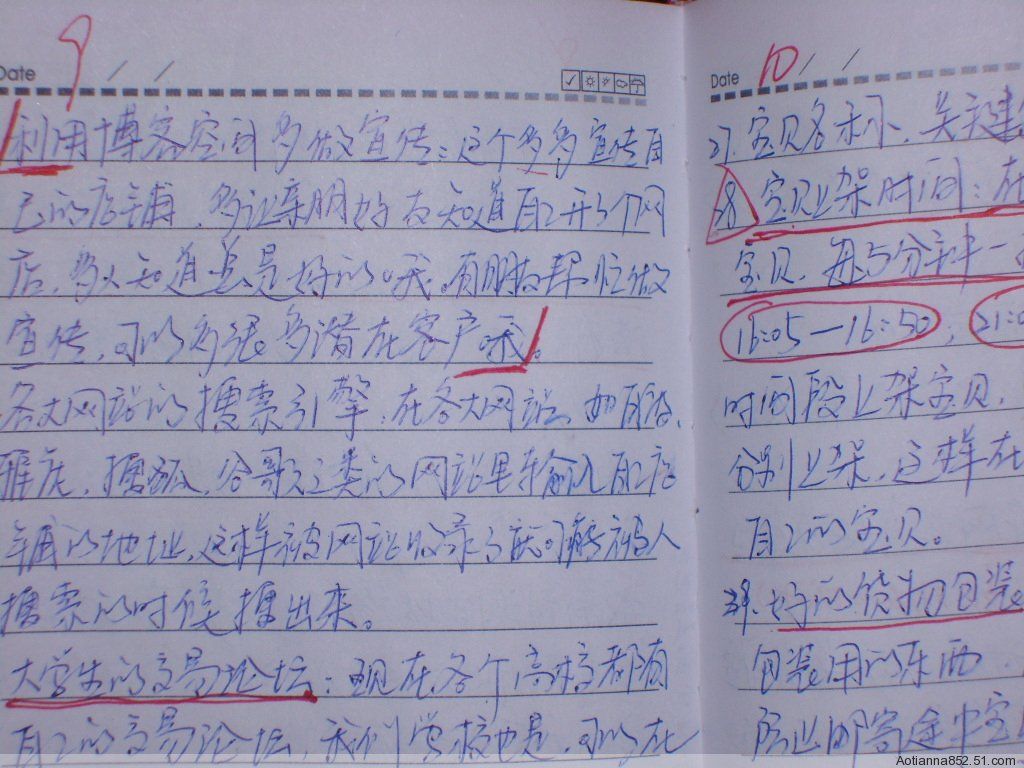 Date 9 / /
利用博客空间多做宣传：这个多多宣传自
己的店铺，多让亲朋好友知道自己开了个网
店，多人知道总是好的哦。有朋友帮忙做
宣传，可以多很多潜在客户哦。
各大网站的搜索引擎：在各大网站，如百度、
雅虎，搜狐，谷歌之类的网站里输入自己店
铺的地址，这样被网站收录了就可能被人
搜索的时候搜出来。
大学生的交易论坛：现在各个高校都有
自己的交易论坛，我们学校也是，可以在
Date 10 / /
27. 宝贝名标下、关键
28 宝贝上架时间：在
宝贝，每5分钟一
16:05—16:50，21:0
时间段上架宝贝，
分别上架，这样在
自己的宝贝。
好的货物包装
包装用的东西
防止邮寄途中宝
Aotianna852.51.com